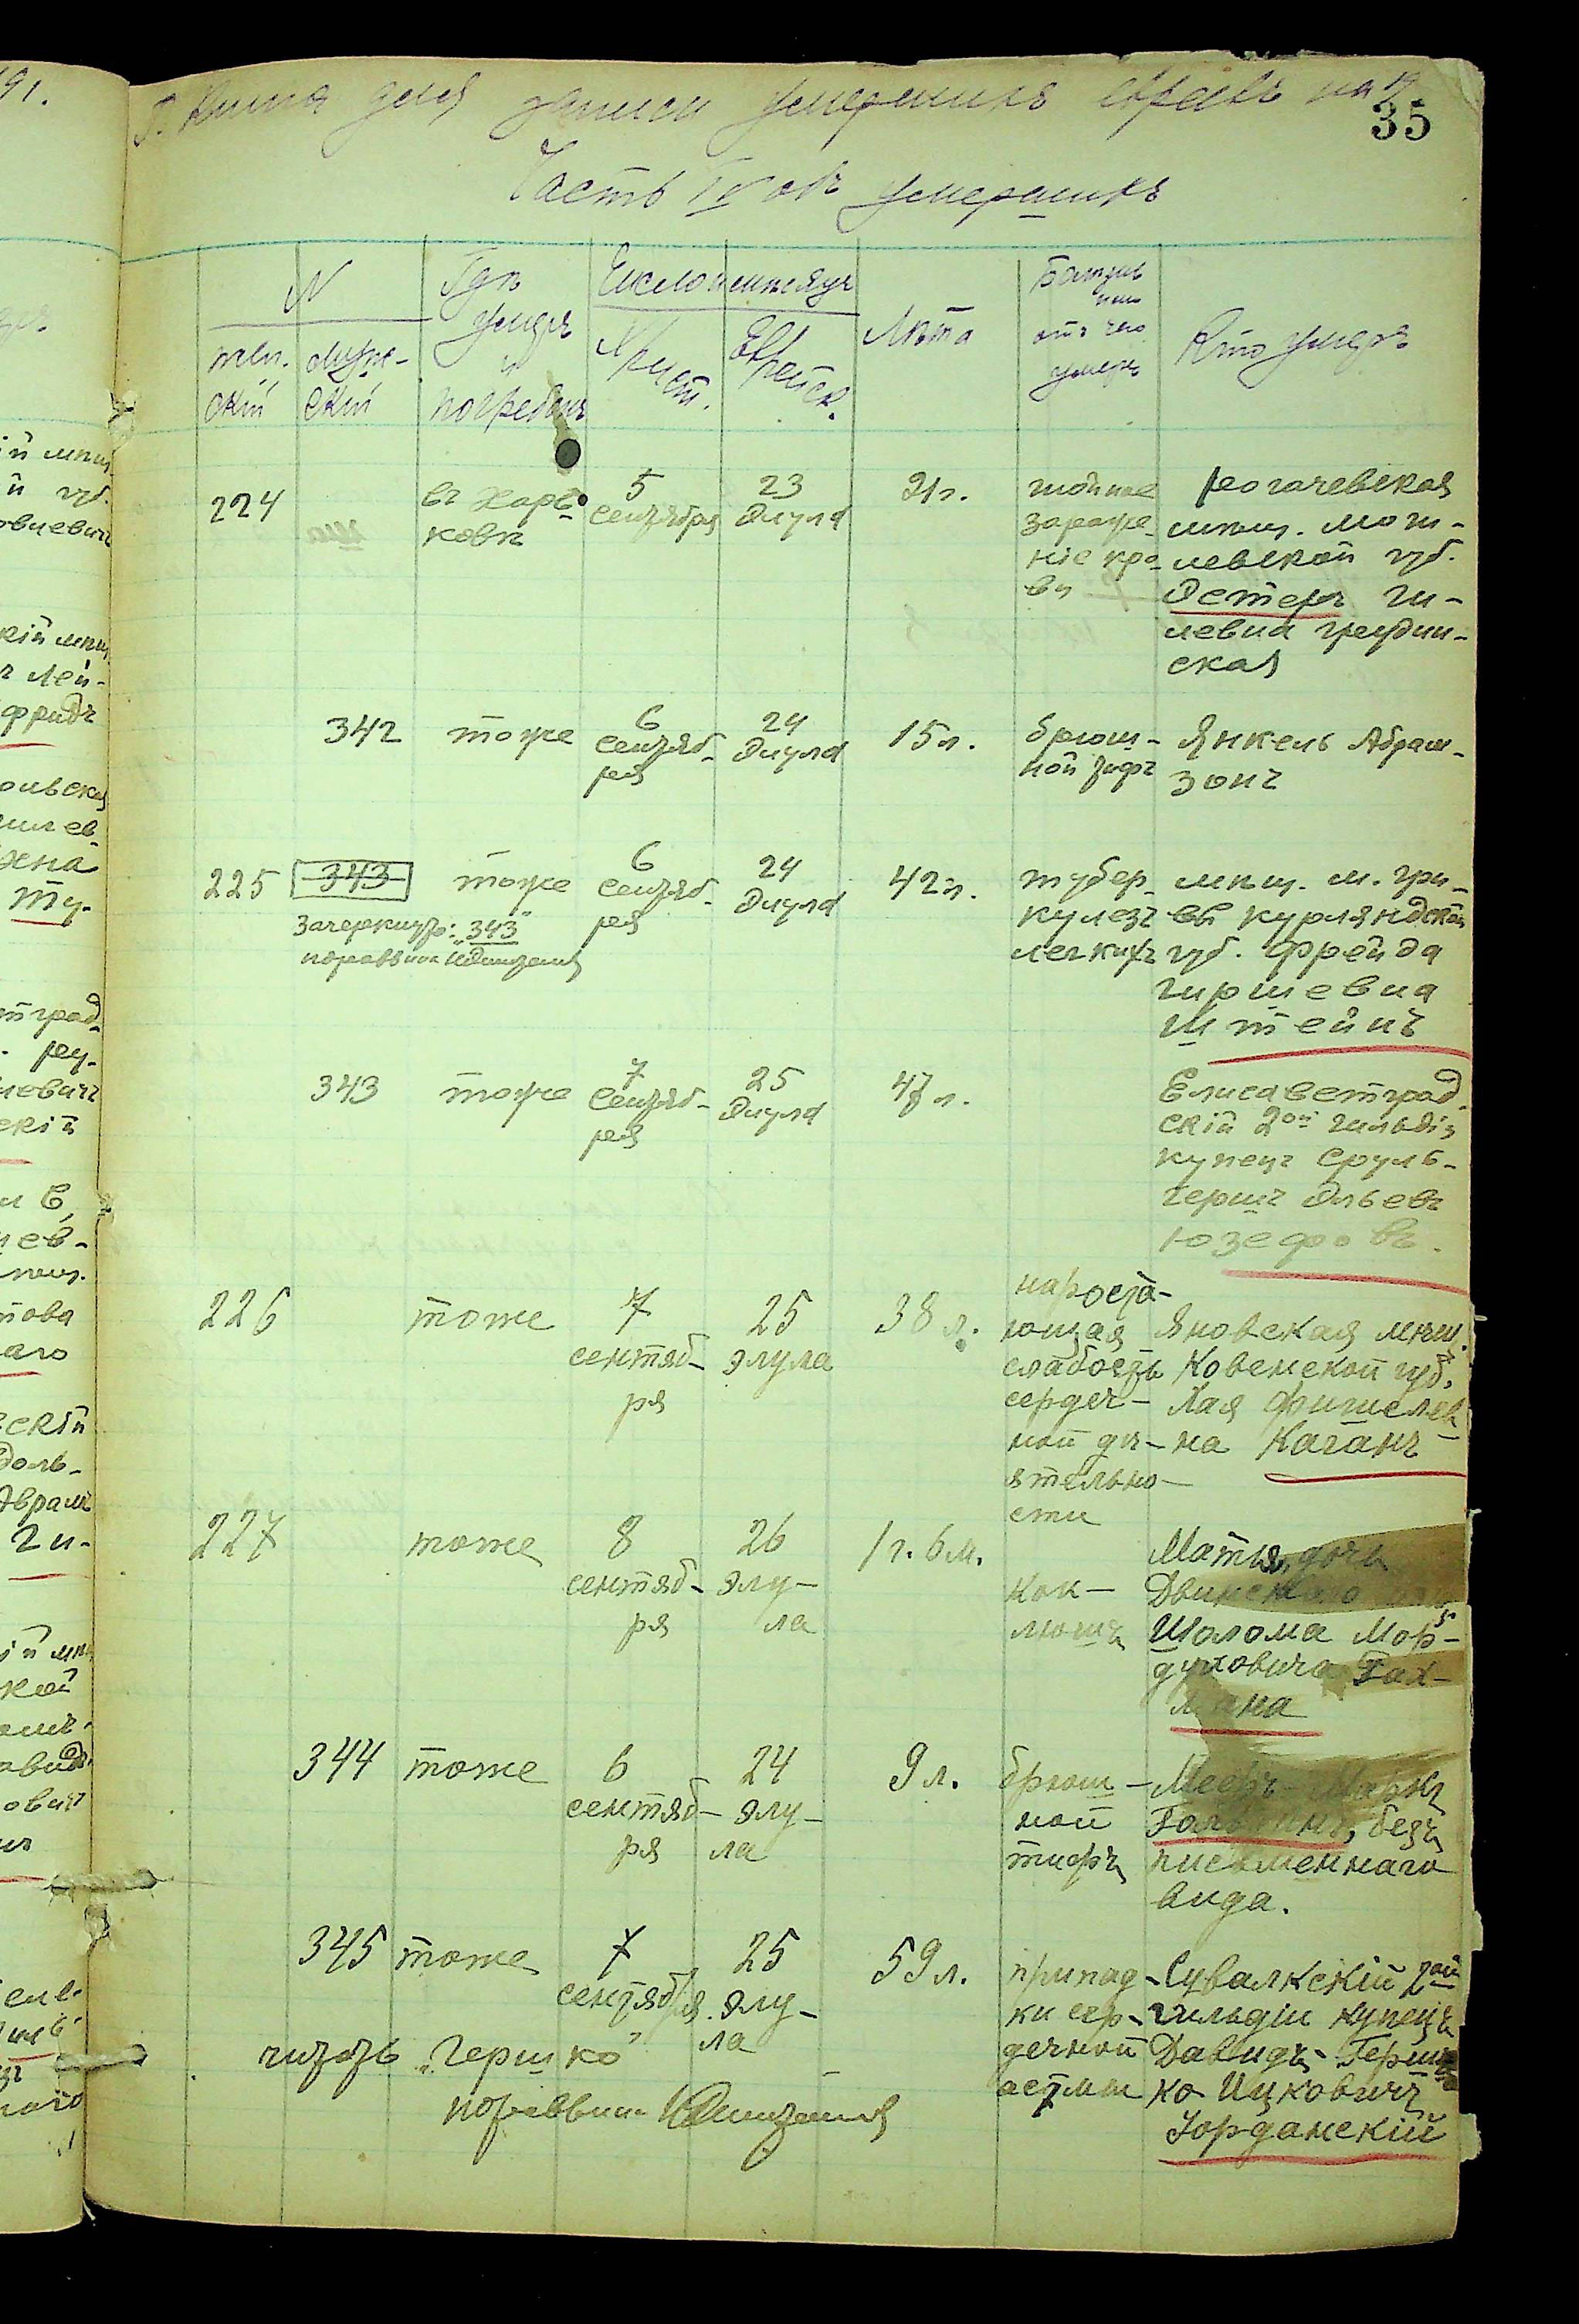 35
Книга для записи умершихъ евреевъ на 19
Часть IV объ умершихъ
N
жен-
скій
муже-
скій
Гдѣ
умеръ
и
погребенъ
Число и мѣсяцъ
Христ.
Еврейск.
Лѣта
Болѣзнь
или
отъ чего
умеръ
Кто умеръ
224
въ Харь-
ковѣ
5
сентября
23
Элула
21г.
гнойное
зараже-
ніе кро-
ви
рогачевская
мѣщ. Моги-
левской губ.
Эстеръ Ги-
левна
342
тоже
6
сентяб-
ря
24
Элула
15л.
брюш-
ной тифъ
Янкель Абрам-
зонъ
225
343
тоже
6
сентяб-
ря
24
Элула
42г.
тубер-
кулезъ
легкихъ
мѣщ. м. Гри-
вы Курляндской
губ. Фрейда
Гиршевна
Штейнъ
Зачеркнуто: „343"
343
тоже
7
сентяб-
ря
25
Элула
47л.
Елисаветград-
скій 2ой гильдіи
купецъ Сруль-
Гершъ Эльевъ
Юзефовъ.
226
тоже
7
сентяб-
ря
25
элула
38 л.
нароста-
ющая
слабость
сердеч-
ной дѣ-
ятельно-
сти
Яновская мѣщ.
Ковенской губ.
Хая Фишелев-
на Каганъ
227
тоже
8
сентяб-
ря
26
элу-
ла
1 г. 6 м.
Кок-
люшъ
Матля, дочь
Двинскаго
Шолома Мор-
духовича Гах-
мана
344
тоже
6
сентяб-
ря
24
элу-
ла
9 л.
брюш-
ной
тифъ
Мееръ-
безъ
письменнаго
вида.
345
тоже
7
сентября.
25
элу-
ла
59 л.
припад-
ки сер-
дечной
астмы
Сувалкскій 2ой
гильдіи купецъ
Давидъ-Герш-
ко Ицковичъ
Іорданскій
читать „Гершко"